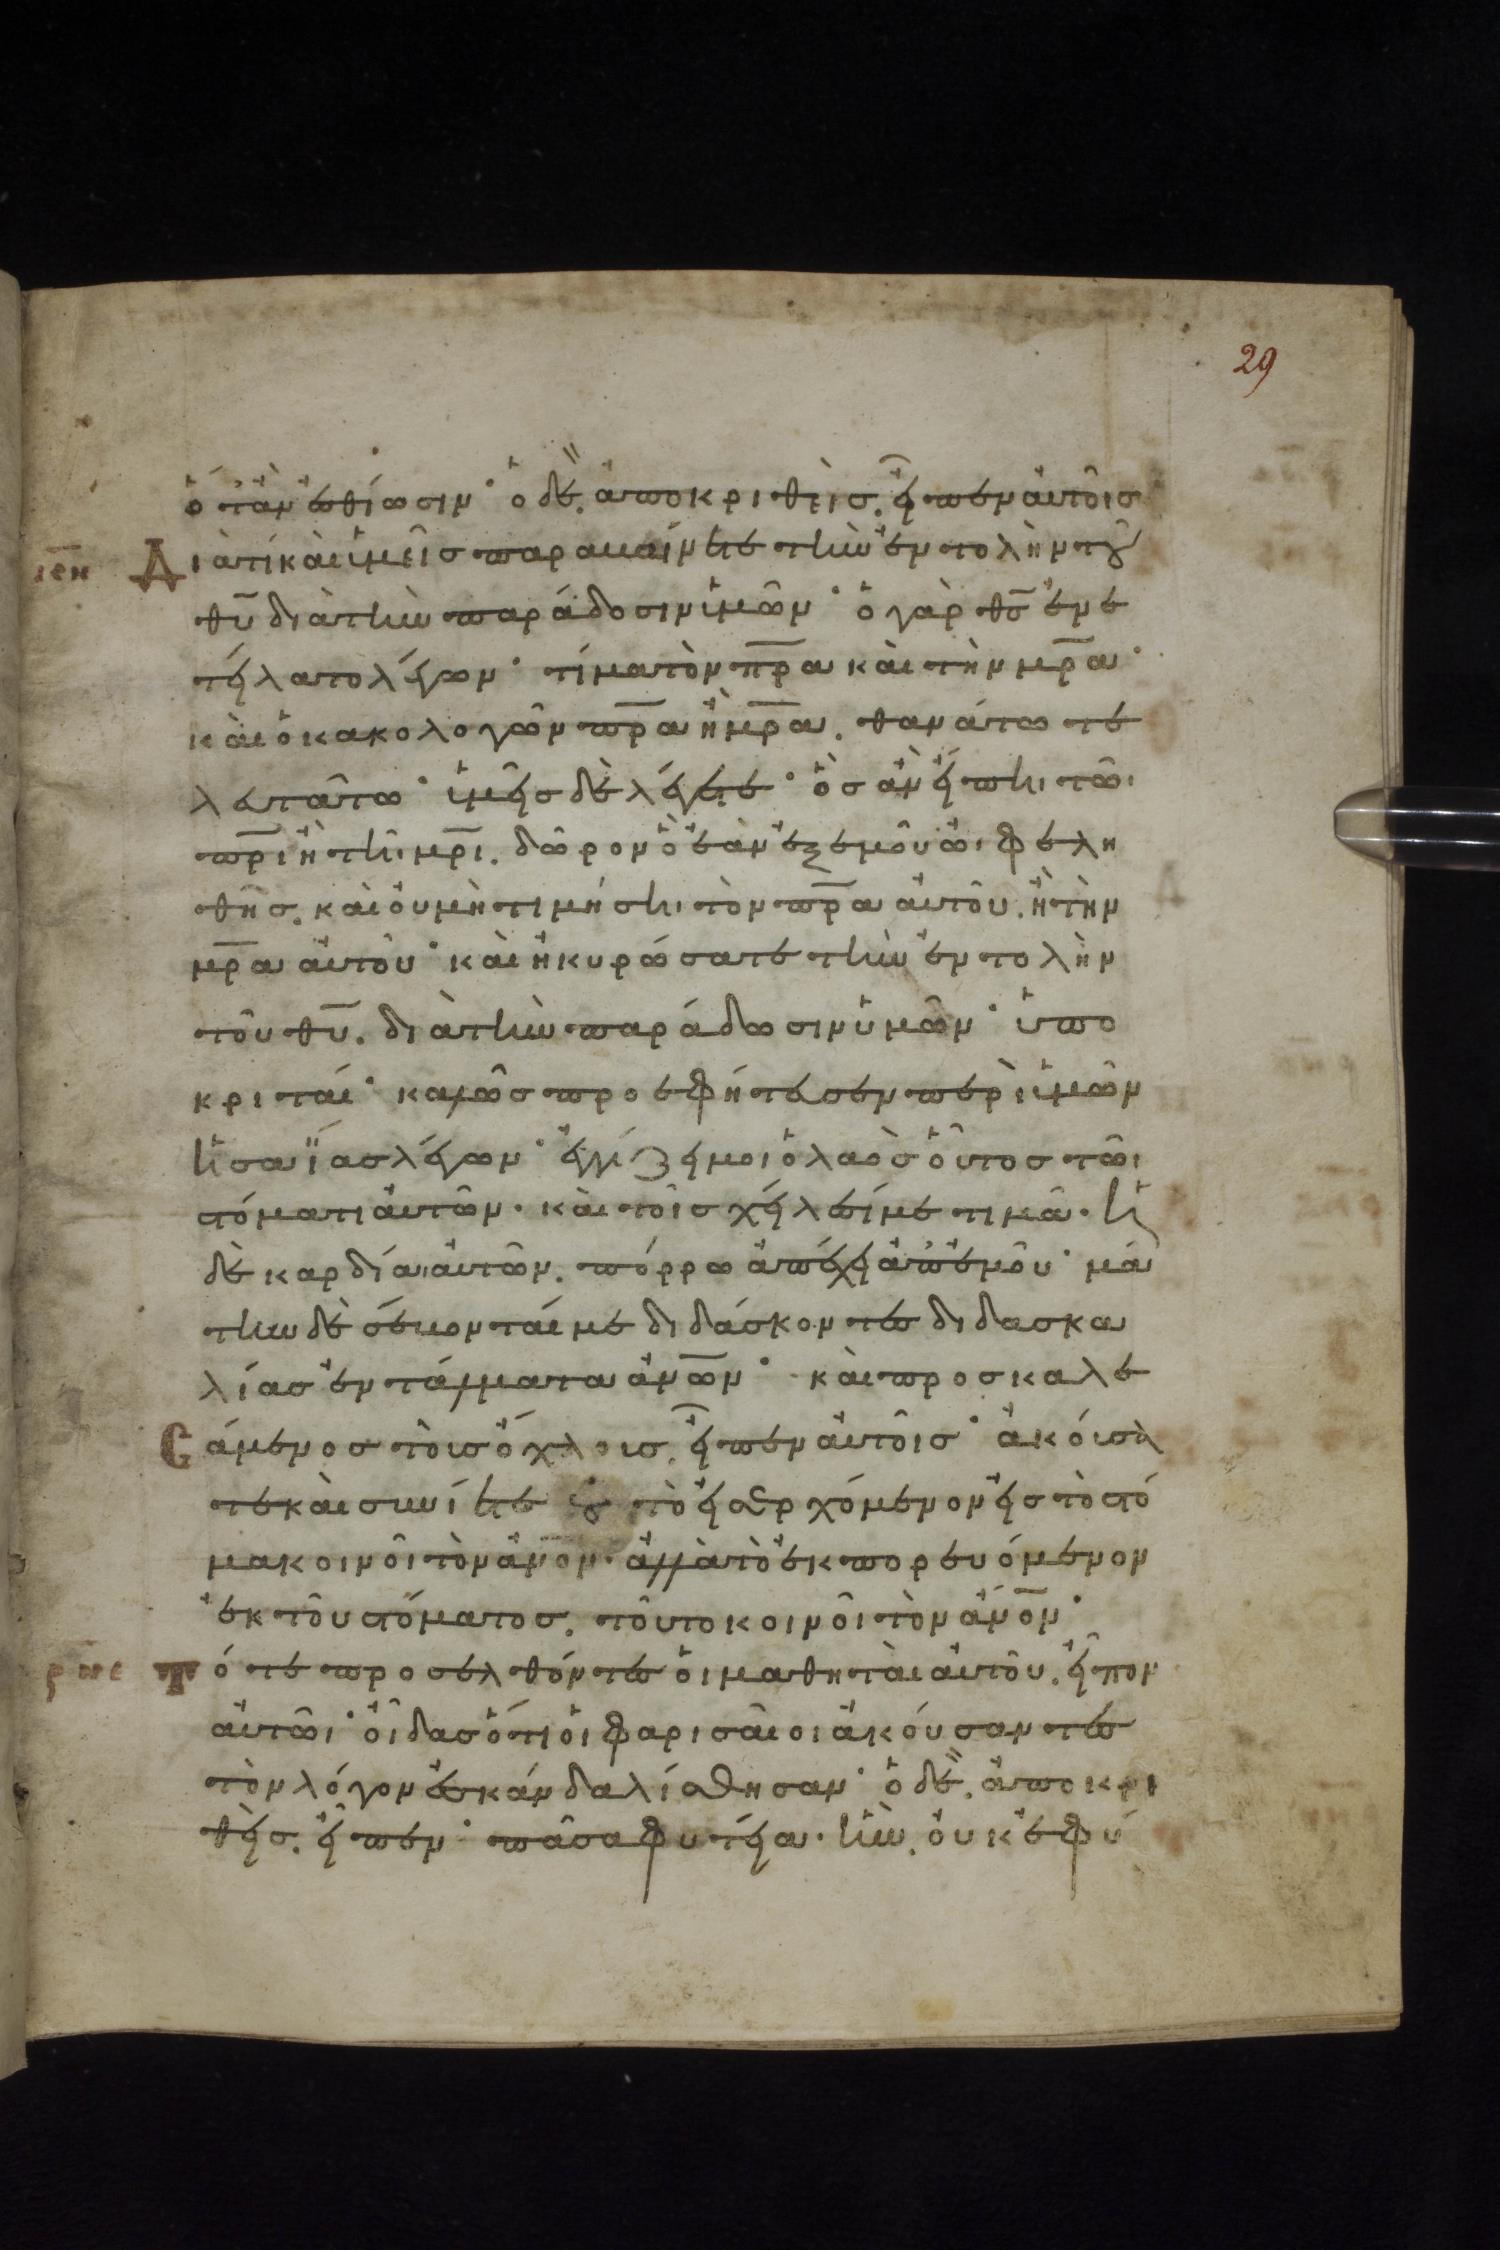 29
ὁτὰν ἐσθίωσιν· ὁ δὲ. ἀποκριθεὶς. εἶπεν αὐτοῖς
Διὰ τί καὶ ἱμεῖς παραβαίνετε τὴν ἐντολὴν τοῦ
θ̅υ̅ διὰ τὴν παράδοσιν ἱμῶν· ὁ γὰρ θ̅ς̅ ἐνε
τείλατο λέγων· τίμα τὸν π̅ρ̅α καὶ τὴν μ̅ρ̅α·
καὶ ὁ κακολογῶν π̅ρ̅α ἢ μ̅ρ̅α. θανάτω τε
λευτάτω· ἱμεῖς δὲ λέγετε· ὃς ἂν εἴπηι τῶι
π̅ρ̅ι ἢ τῆι μ̅ρ̅ι. δῶρον ὃ ἐὰν ἐξ ἐμοῦ ὠιφελη
θῆς. καὶ οὐ μὴ τιμήσηι τὸν π̅ρ̅α αὐτοῦ. ἢ τὴν
μ̅ρ̅α αὐτοῦ· καὶ ἠκυρώσατε τὴν ἐντολὴν
τοῦ θ̅υ̅. διὰ τὴν παράδωσιν ὑμῶν· ὑπο
κριταί· καλῶς προεφήτευσεν περὶ ἱμῶν
ἡσαΐας λέγων· ἐγγίζει μοι ὁ λαὸς οὗτος τῶι
στόματι αὐτῶν· καὶ τοῖς χείλεσί με τιμᾶ· ἡ
δὲ καρδία αὐτῶν. πόρρω ἀπέχει ἀπ' ἐμοῦ· μά
την δὲ σέβονταί με διδάσκοντες διδασκα
λίας ἐντάλματα ἀν̅ω̅ν· καὶ προσκαλε
σάμενος τοὺς ὄχλους. εἶπεν αὐτοῖς· ἀκούσα
τε καὶ συνίετε οὐ τὸ εἰσερχόμενον εἰς τὸ στό
μα κοινοῖ τὸν ἄν̅ο̅ν· ἀλλὰ τὸ ἐκπορευόμενον
ἐκ τοῦ στόματος. τοῦτο κοινοῖ τὸν ἄν̅ο̅ν·
Τότε προσελθόντες οἱ μαθηταὶ αὐτοῦ. εἶπον
αὐτῶι· οἶδας ὅτι οἱ φαρισαῖοι ἀκούσαντες
τὸν λόγον ἐσκανδαλίσθησαν· ὁ δὲ. ἀποκρι
θεὶς. εἶπεν· πᾶσα φυτεία· ἣν. οὐκ ἐφύ